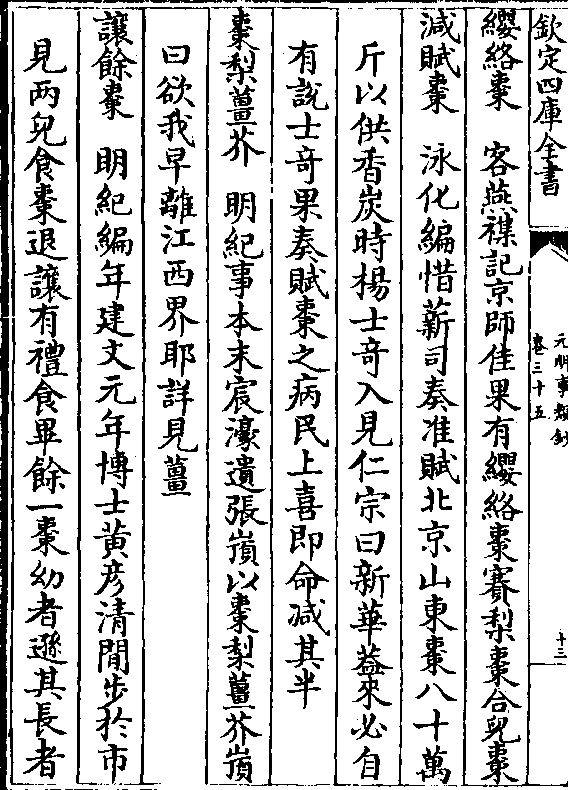 欽定四庫全書
元明事類鈔
卷三十五
十三
纓絡棗　客燕襍記京師佳果有纓絡棗賽梨棗合兒棗
減賦棗　泳化編惜薪司奏准賦北京山東棗八十萬
斤以供香炭時楊士竒入見仁宗曰新華葢來必自
有說士竒果奏賦棗之病民上喜即命減其半
棗梨薑芥　明紀事本末宸濠遺張嵿以棗梨薑芥嵿
曰欲我早離江西界耶詳見薑
讓餘棗　明紀編年建文元年博士黃彦清閒步於市
見兩兒食棗退讓有禮食畢餘一棗幼者遜其長者